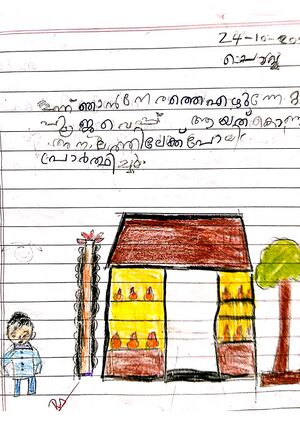 24-10-20
ചൊവ്വ
ഇന്ന് ഞാൻ നേരത്തെ എഴുന്നേ
പൂജവെപ്പ് ആയത് കൊണ്ട
അമ്പലത്തിലേക്ക് പോയി
പ്രാർത്ഥിച്ചു.